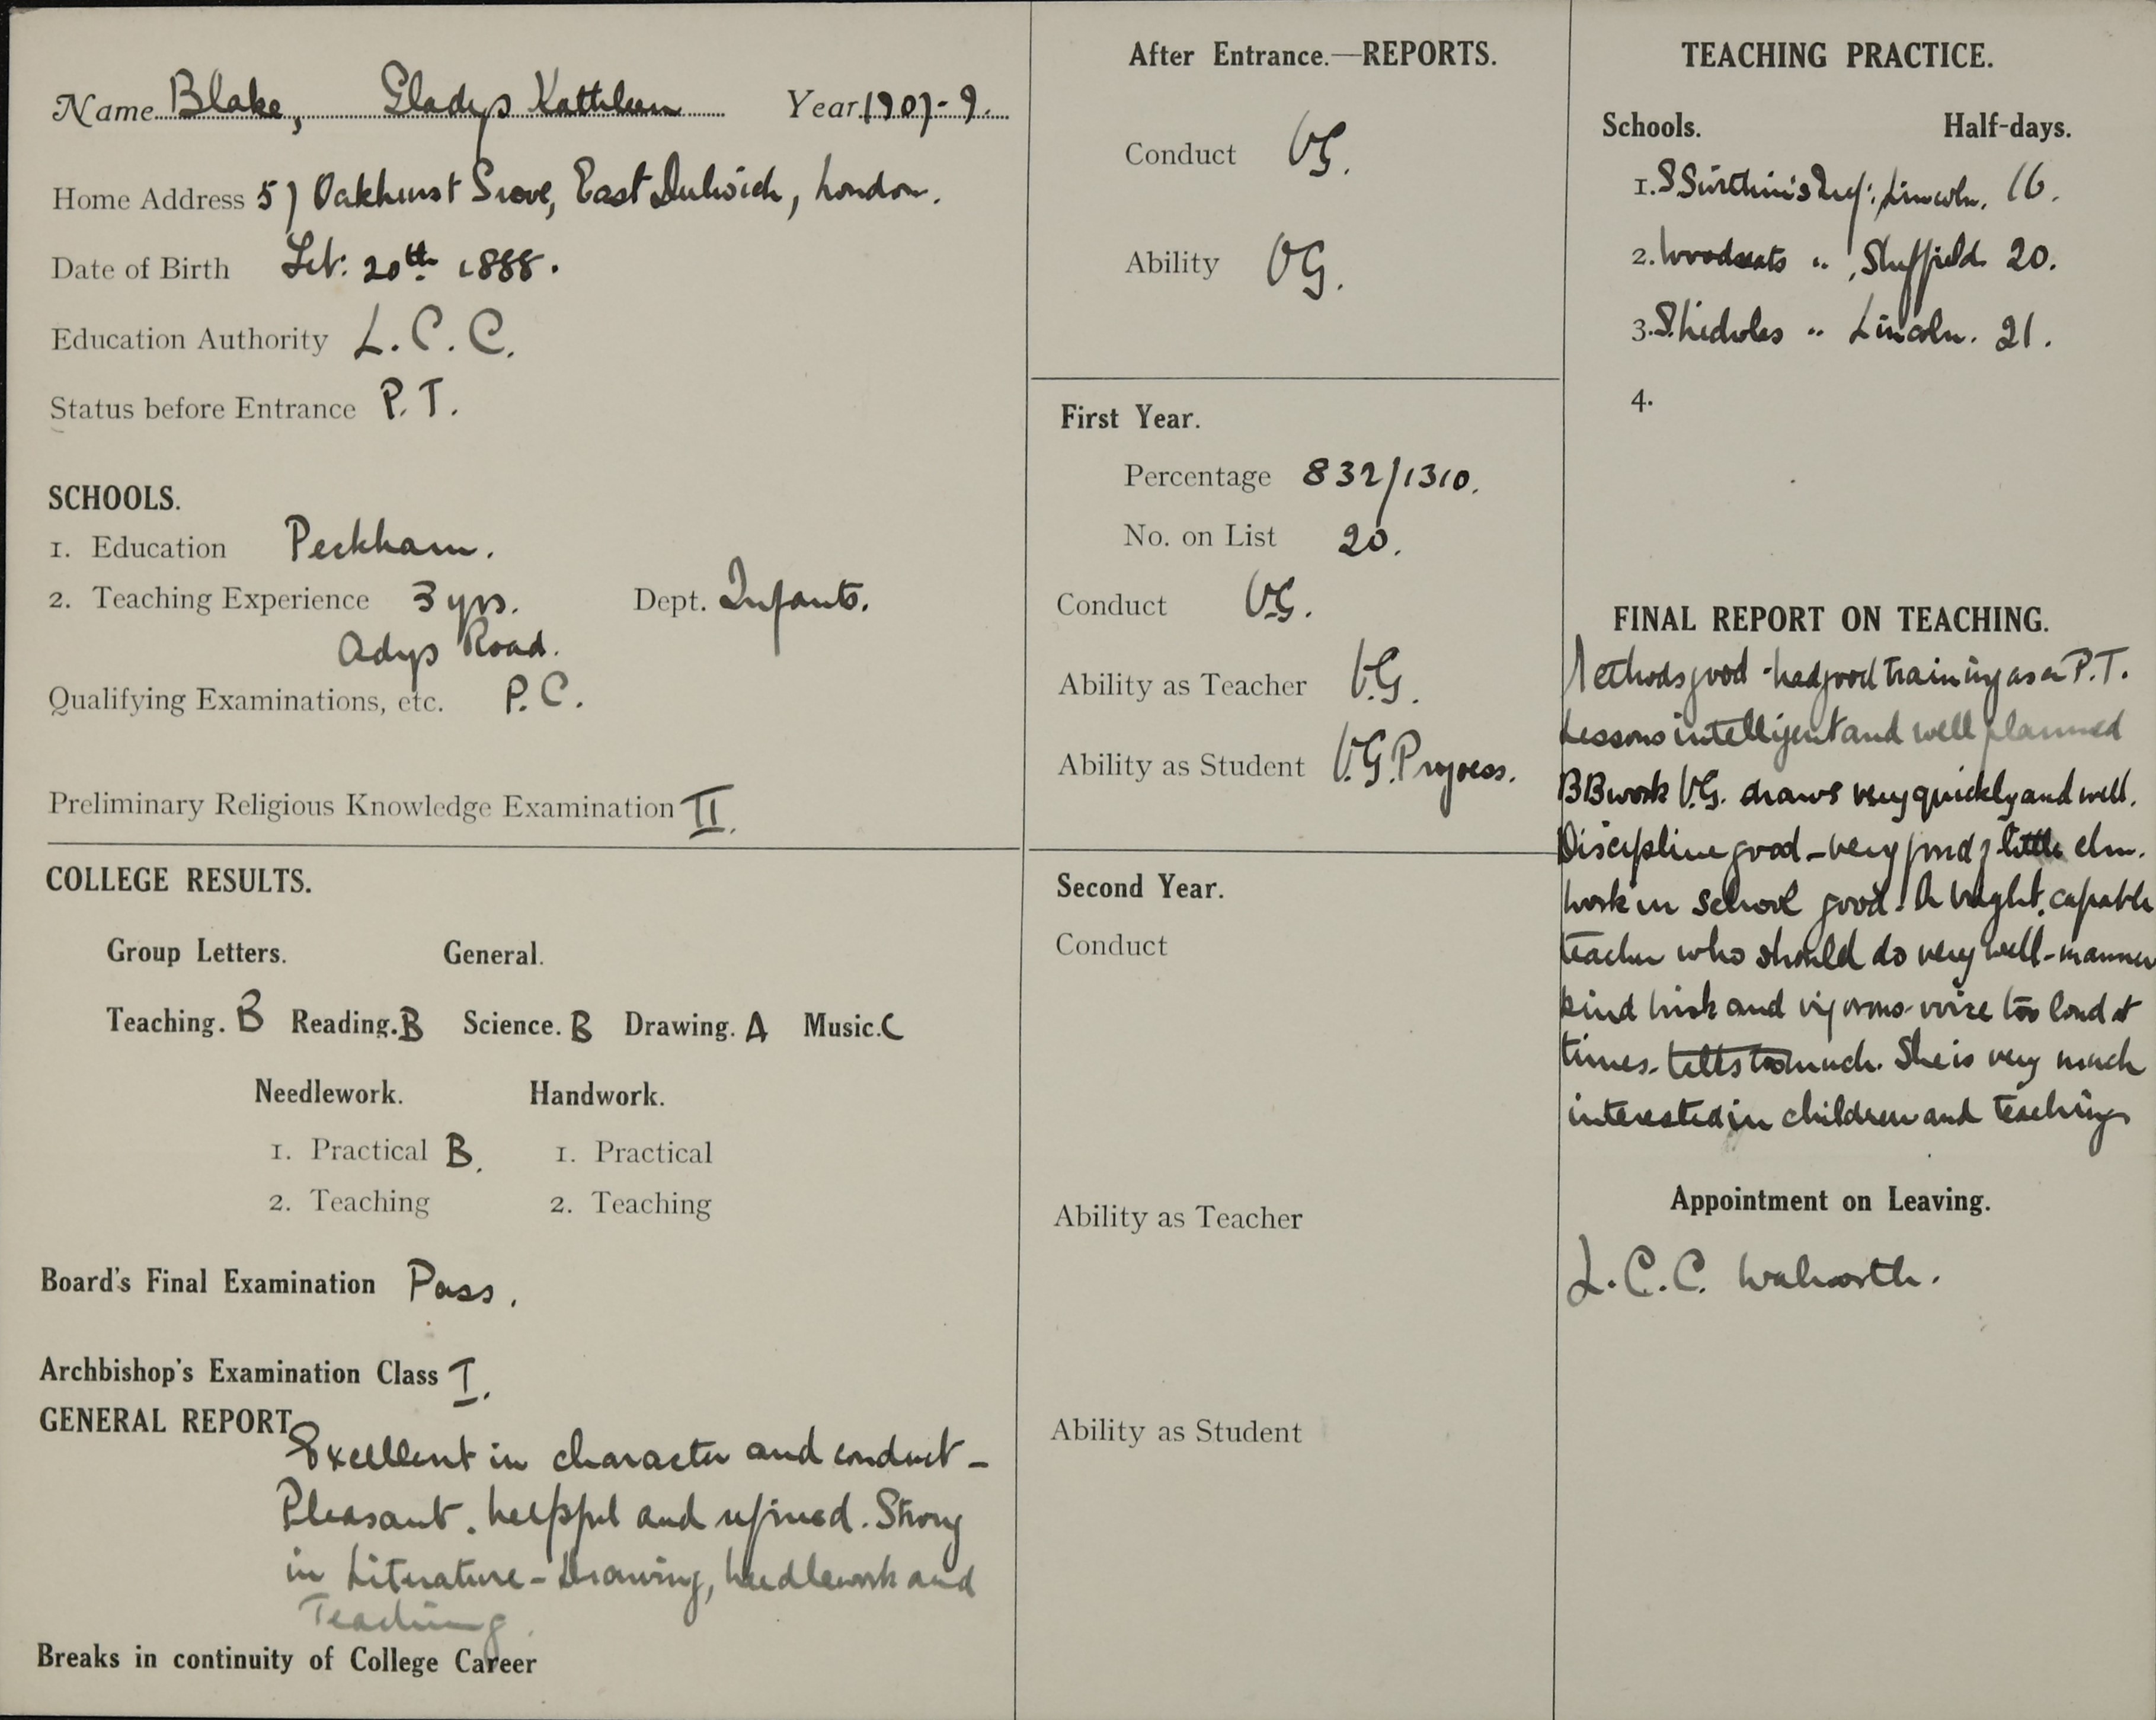 Name Blake, Gladys Kathleen Year 1907-9.
Home Address 57 Oakhurst Grove, East Dulwich, London.
Date of Birth Feb: 20th 1888.
Education Authority L.C.C.
Status before Entrance P.T.
SCHOOLS.
1. Education Peckham.
2. Teaching Experience 3 yrs. Dept. Infants.
Adys Road.
Qualifying Examinations, etc. P.C.
Preliminary Religious Knowledge Examination II.
COLLEGE RESULTS.
Group Letters. General.
Teaching. B Reading. B Science. B Drawing. A Music. C
Needlework. Handwork.
1. Practical B. 1. Practical
2. Teaching 2. Teaching
Board's Final Examination Pass.
Archbishop's Examination Class I.
GENERAL REPORT
Excellent in character and conduct -
Pleasant. helpful and refined. Strong
in Literature - Drawing, Needlework and
Teaching.
Breaks in continuity of College Career
After Entrance.—REPORTS.
Conduct VG.
Ability VG.
First Year.
Percentage 832/1310.
No. on List 20.
Conduct VG.
Ability as Teacher V.G.
Ability as Student V.G. Progress.
Second Year.
Conduct
Ability as Teacher
Ability as Student
TEACHING PRACTICE.
Schools. Half-days.
1. S Swithin's Inf: Lincoln. 16.
2. Woodseats " , Sheffield. 20.
3. S. " Lincoln. 21.
4.
FINAL REPORT ON TEACHING.
Methods good - had good training as a P.T.
Lessons intelligent and well planned
BB work V.G. draws very quickly and well.
Discipline good - very fond of little chn.
Work in school good. A bright, capable
teacher who should do very well - manner
kind brisk and vigorous - voice too loud at
times. tells too much. She is very much
interested in children and teaching
Appointment on Leaving.
L.C.C. Walworth.